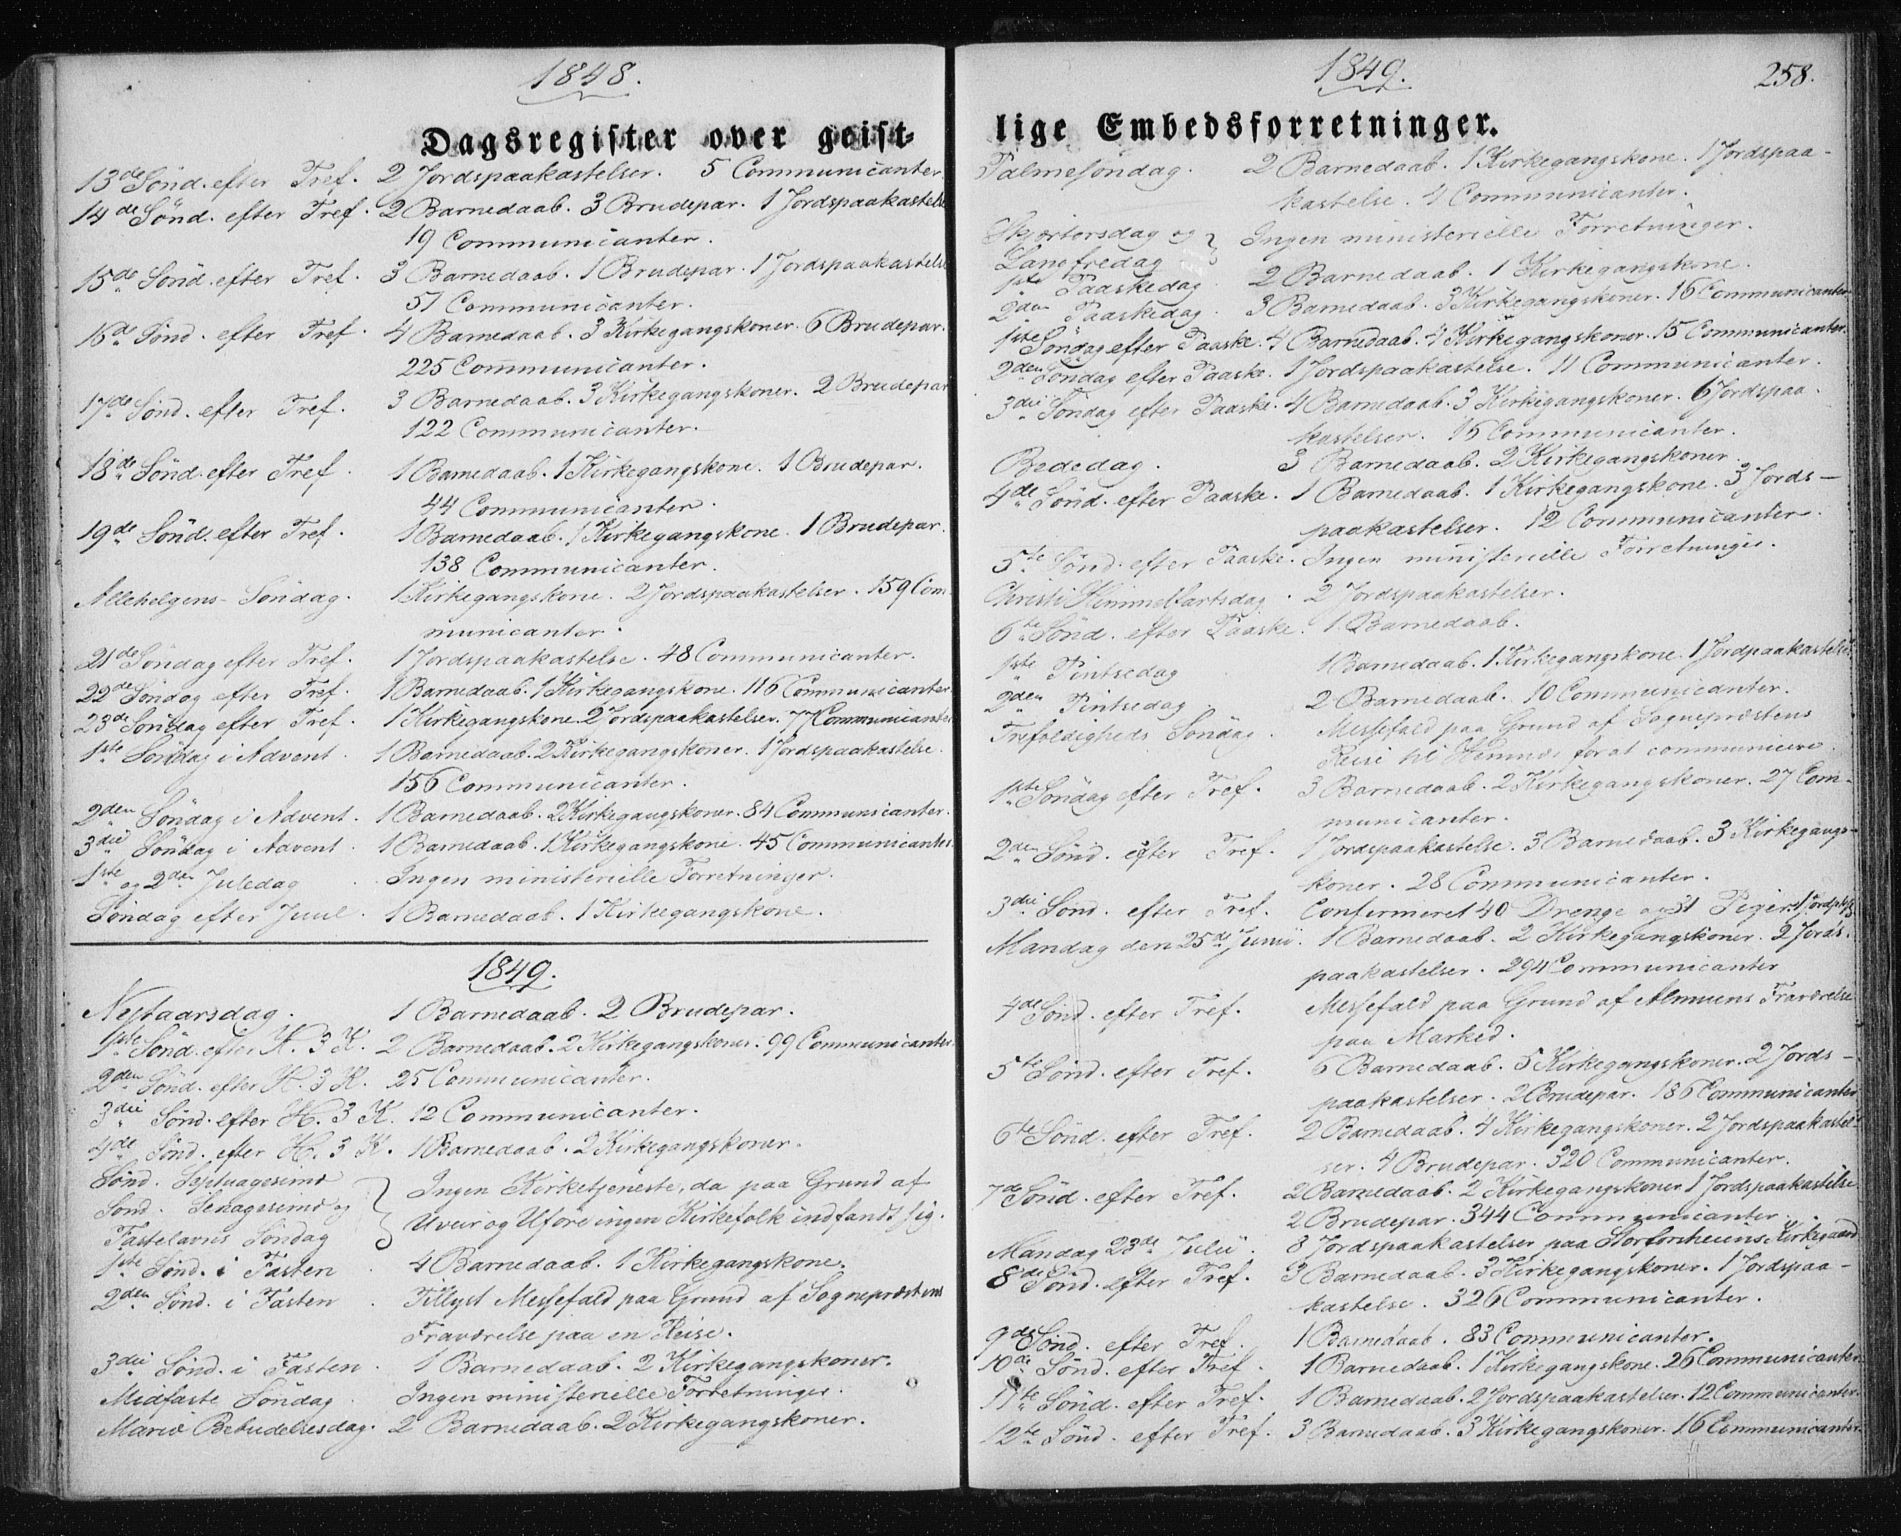 1848.
Dagsregister over geist-
13de Sönd. efter Tref. 2 Jordspaakastelser. 5 Communicanter.
14de Sönd. efter Tref. 2 Barnedaab. 3 Brudepar. 1 Jordspaakastelse
19 Communicanter.
15de Sönd. efter Tref. 3 Barnedaab. 1 Brudepar. 1 Jordspaakastelse
51 Communicanter.
16de Sönd. efter Tref. 4 Barnedaab. 3 Kirkegangskoner. 6 Brudepar.
225 Communicanter.
17de Sönd. efter Tref. 3 Barnedaab. 3 Kirkegangskoner. 2 Brudepar
122 Communicanter.
18de Sönd. efter Tref. 1 Barnedaab. 1 Kirkegangskone. 1 Brudepar.
44 Communicanter.
19de Sönd. efter Tref. 1 Barnedaab. 1 Kirkegangskone. 1 Brudepar.
138 Communicanter.
Allehelgens-Söndag. 1 Kirkegangskone. 2 Jordspaakastelser. 159 Com
municanter.
21de Söndag efter Tref. 1 Jordspaakastelse. 48 Communicanter.
22de Söndag efter Tref. 1 Barnedaab. 1 Kirkegangskone. 116 Communicanter
23de Söndag efter Tref. 1 Kirkegangskone. 2 Jordspaakastelser. 77 Communicanter
1ste Söndag i Advent. 1 Barnedaab. 2 Kirkegangskoner. 1 Jordspaakastelse.
156 Communicanter.
2den Söndag i Advent. 1 Barnedaab. 2 Kirkegangskoner. 84 Communicanter.
3die Söndag i Advent. 1 Barnedaab. 1 Kirkegangskone. 45 Communicanter.
1ste og 2den Juledag. Ingen ministerielle Forretninger.
Söndag efter Juul. 1 Barnedaab. 1 Kirkegangskone.
1849.
Nytaarsdag. 1 Barnedaab. 2 Brudepar.
1ste Sönd. efter H. 3 K. 2 Barnedaab. 2 Kirkegangskoner. 99 Communicanter.
2den Sönd. efter H. 3 K. 25 Communicanter.
3die Sönd. efter H. 3 K. 12 Communicanter.
4de Sönd. efter H. 3 K. 1 Barnedaab. 2 Kirkegangskoner.
Sönd. Septuagesima
Sönd. Sexagesima og
Fastelavns Söndag
Ingen Kirketjeneste, da paa Grund af
Uveir og Uföre ingen Kirkefolk indfandt sig.
1ste Sönd. i Fasten. 4 Barnedaab. 1 Kirkegangskone.
2den Sönd. i Fasten. Tillyst Messefald paa Grund af Sognepræstens
Fraværelse paa en Reise.
3die Sönd. i Fasten 1 Barnedaab. 2 Kirkegangskoner.
Midfaste Söndag. Ingen ministerielle Forretninger.
Mariæ Bebudelsesdag. 2 Barnedaab. 2 Kirkegangskoner.
1849. 258.
lige Embedsforretninger.
Palmesöndag. 2 Barnedaab. 1 Kirkegangskone. 1 Jordspaa-
kastelse. 4 Communicanter.
Skjærtorsdag og
Langfredag
Ingen ministerielle Forretninger.
1ste Paaskedag. 2 Barnedaab. 1 Kirkegangskone.
2den Paaskedag. 3 Barnedaab. 3 Kirkegangskoner. 16 Communicanter
1ste Söndag efter Paaske. 4 Barnedaab. 4 Kirkegangskoner. 15 Communicanter.
2den Söndag efter Paaske. 1 Jordspaakastelse. 11 Communicanter.
3die Söndag efter Paaske. 4 Barnedaab. 3 Kirkegangskoner. 6 Jordspaa-
kastelser. 15 Communicanter.
Bededag. 3 Barnedaab. 2 Kirkegangskoner.
4de Sönd. efter Paaske. 1 Barnedaab. 1 Kirkegangskone. 3 Jords-
paakastelser. 12 Communicanter.
5te Sönd. efter Paaske. Ingen ministerielle Forretninger.
Christi Himmelfartsdag. 2 Jordspaakastelser.
6te Sönd. efter Paaske. 1 Barnedaab.
1ste Pintsedag 1 Barnedaab. 1 Kirkegangskone. 1 Jordpaakastelse.
2den Pintsedag 2 Barnedaab. 10 Communicanter.
Trefoldigheds Söndag. Messefald paa Grund af Sognepræstens
Reise til Hemnæs for at communicere.
1ste Söndag efter Tref. 3 Barnedaab. 2 Kirkegangskoner. 27 Com-
municanter.
2den Sönd. efter Tref. 1 Jordspaakastelse. 3 Barnedaab. 3 Kirkegangs-
koner. 28 Communicanter.
3die Sönd. efter Tref. Confirmeret 40 Drenge og 31 Piger.
Mandag den 25de Junii. 1 Barnedaab. 2 Kirkegangskoner. 2 Jords-
paakastelser. 294 Communicanter
4de Sönd. efter Tref. Messefald paa Grund af Almuens Fraværelse
paa Marked.
5te Sönd. efter Tref. 6 Barnedaab. 5 Kirkegangskoner. 2 Jords-
paakastelser. 2 Brudepar. 186 Communicanter
6te Sönd. efter Tref. 2 Barnedaab. 4 Kirkegangskoner. 2 Jordspaakastel-
ser. 4 Brudepar. 320 Communicanter.
7de Sönd. efter Tref. 2 Barnedaab. 2 Kirkegangskoner. 1 Jordspaakastelse
2 Brudepar. 344 Communicanter.
Mandag 23de Julii. 8 Jordspaakastelser paa Storforsheiens Kirkegaard
8de Sönd. efter Tref. 3 Barnedaab. 3 Kirkegangskoner. 1 Jordspaa-
kastelse. 326 Communicanter.
9de Sönd. efter Tref. 1 Barnedaab. 83 Communicanter.
10de Sönd. efter Tref. 1 Barnedaab. 1 Kirkegangskone. 26 Communicanter
11te Sönd. efter Tref. 1 Barnedaab. 2 Jordspaakastelser. 12 Communicanter.
12te Sönd. efter Tref. 3 Barnedaab. 3 Kirkegangskoner. 16 Communicanter.